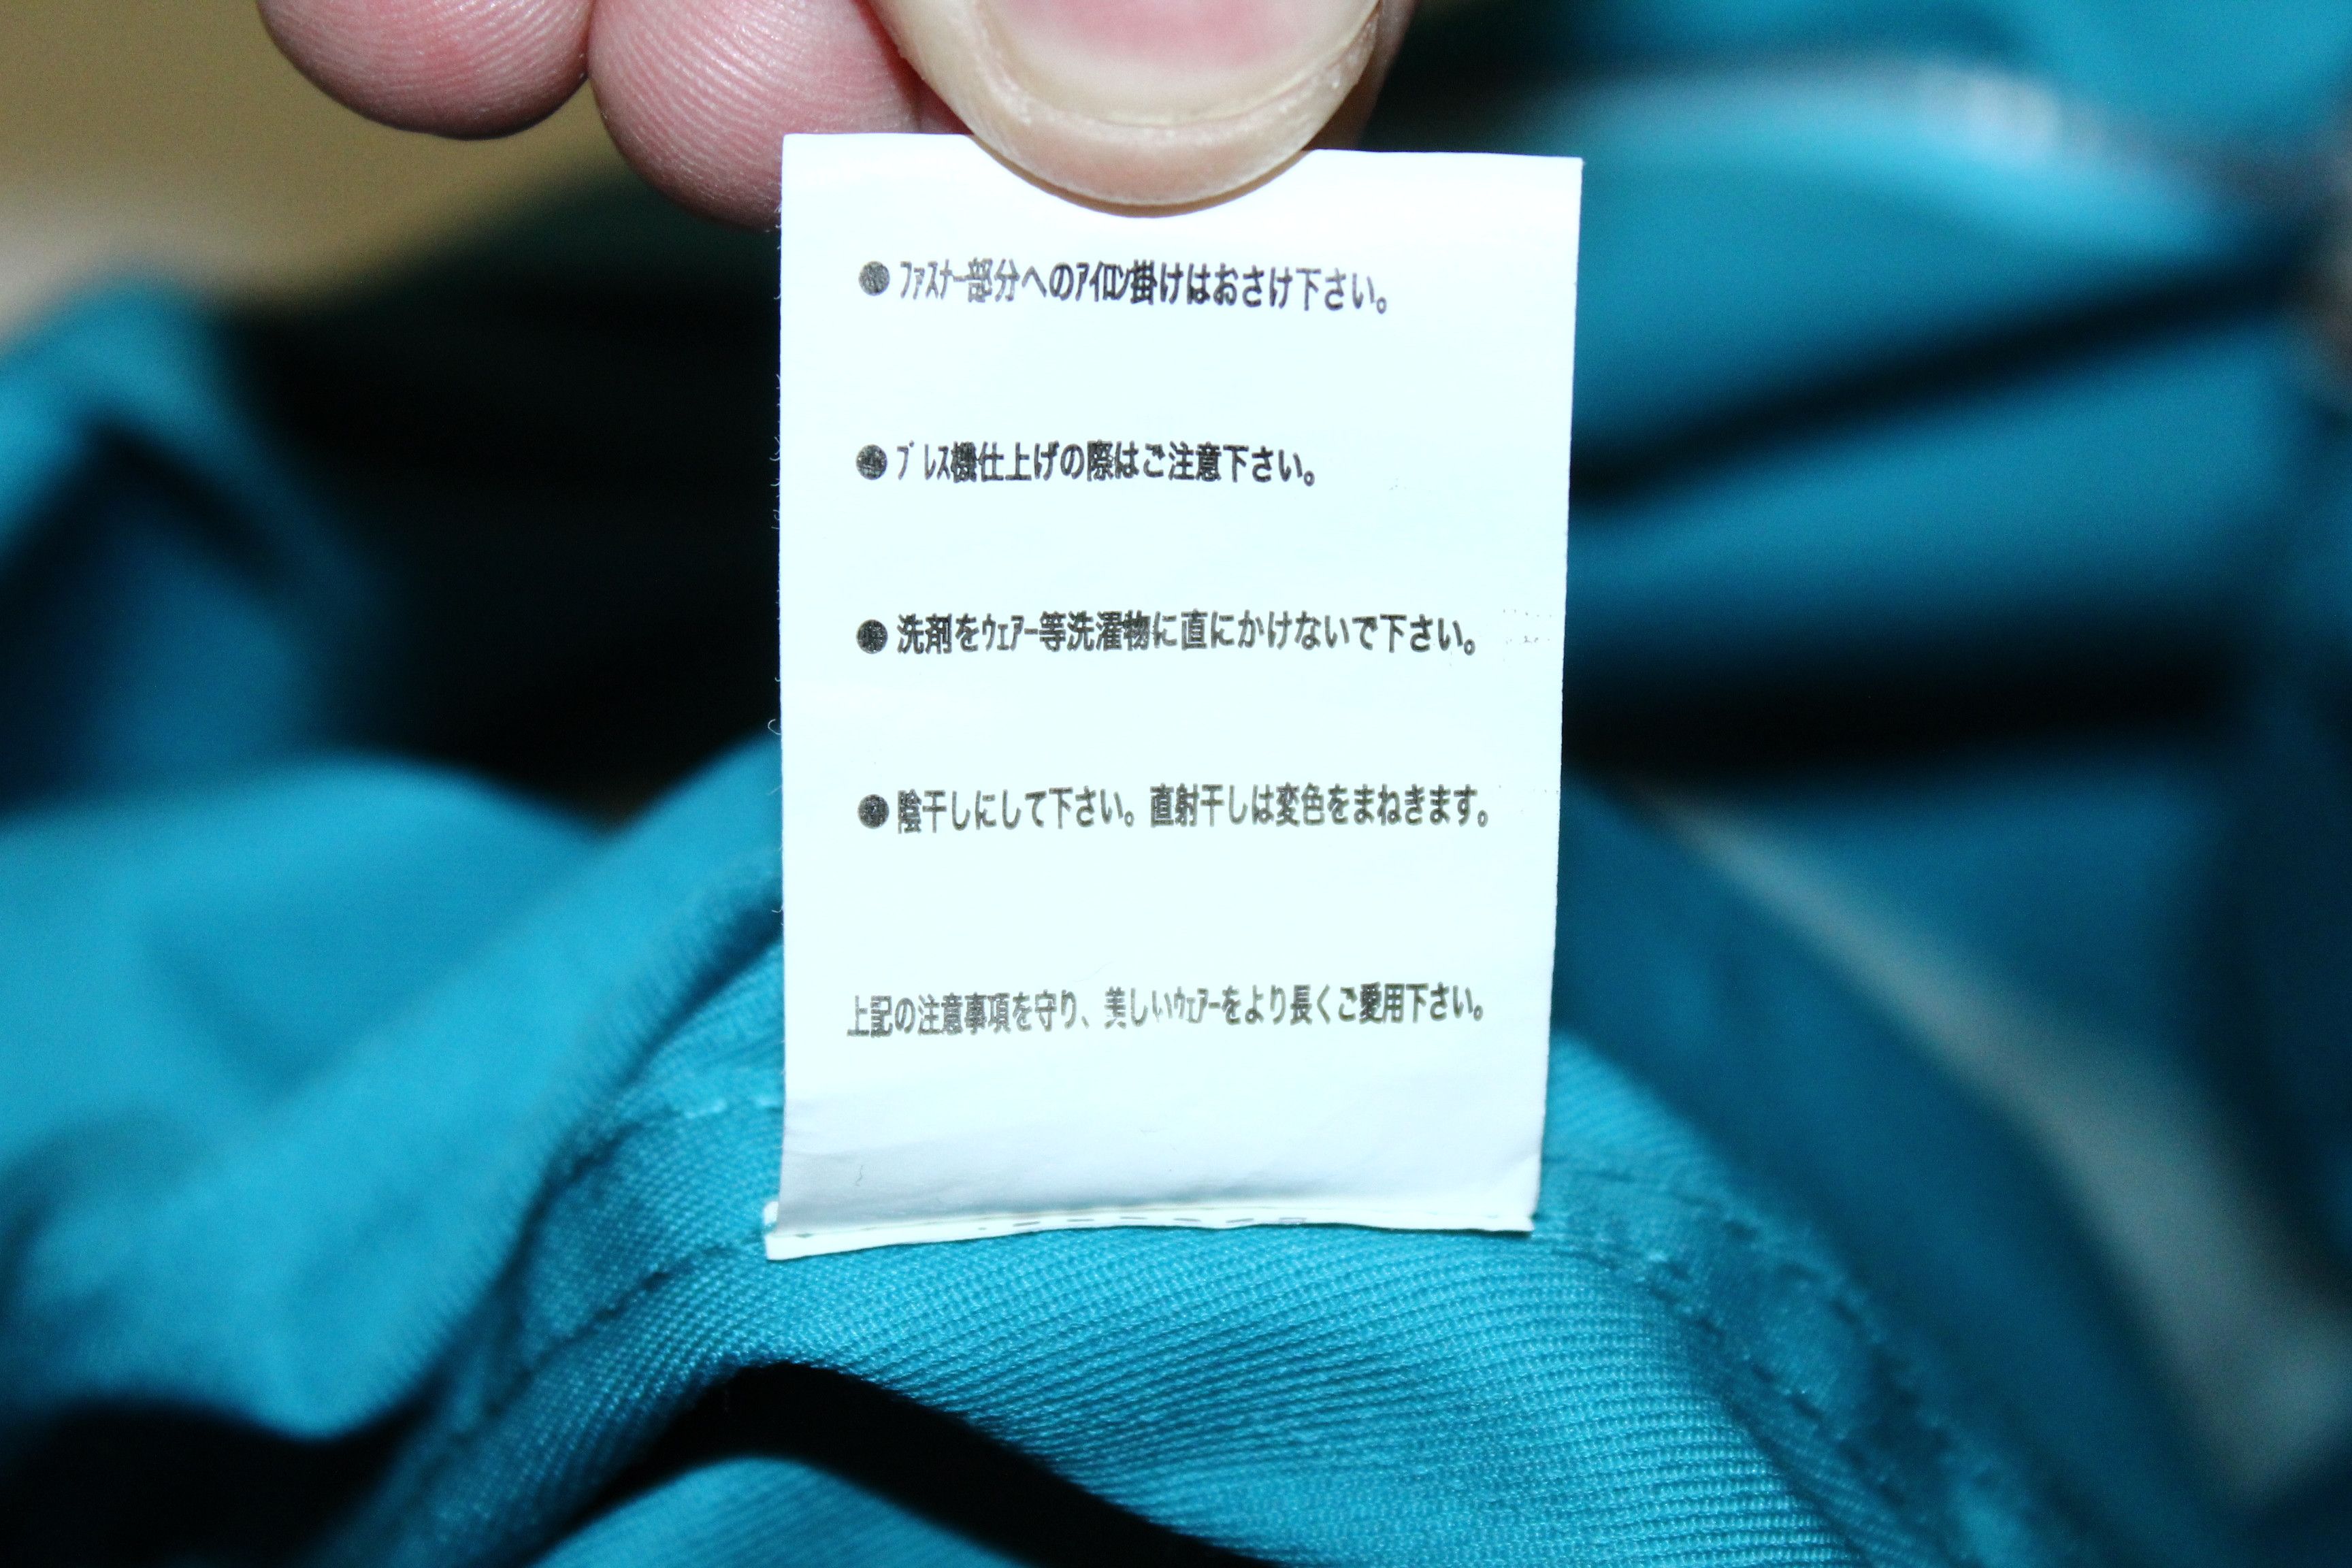 ●ﾌｧｽﾅｰ部分へのｱｲﾛﾝ掛けはおさけ下さい。
●ﾌﾟﾚｽ機仕上げの際はご注意下さい。
●洗剤をｳｪｱｰ等洗濯物に直にかけないで下さい。
●陰干しにして下さい。直射干しは変色をまねきます。
上記の注意事項を守り、美しいｳｪｱｰをより長くご愛用下さい。